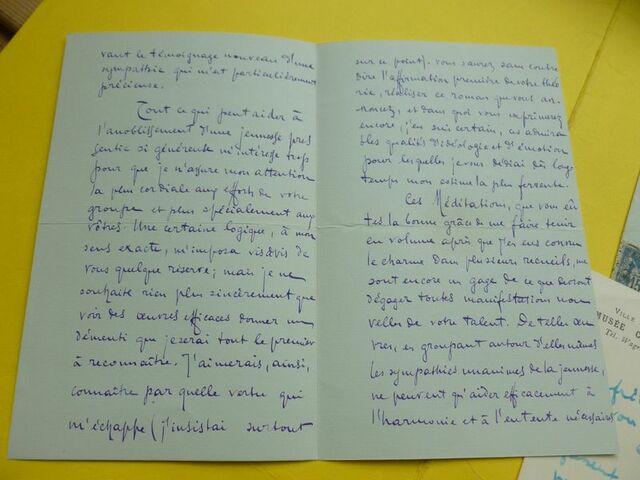 vant le témoignage nouveau d'une
sympathie qui m'est particulièrement
précieuse.
Tout ce qui peut aider à
l'anoblissement d'une jeunesse pres
sentie si généreuse m'intéresse trop
pour que je n'assure mon attention
la plus cordiale aux efforts de votre
groupe et plus spécialement aux
vôtres. Une certaine logique, à mon
sens exacte, m'imposa vis à vis de
vous quelque réserve; mais je ne
souhaite rien plus sincèrement que
voir des œuvres efficaces donner un
démenti que je serai tout le premier
à reconnaître. J'aimerais, ainsi,
connaître par quelle vertu qui
m'échappe (j'insistai surtout
sur ce point). vous saurez, sans contre
dire l'affirmation première de votre théo
rie, réaliser ce roman que vous an
noncez, et dans quoi vous exprimerez
encore, j'en suis certain, ces admira
bles qualités d'idéologie et d'émotion
pour lesquelles je vous dédiai dès long
temps mon estime la plus fervente.
Ces Méditations, que vous eû
tes la bonne grâce de me faire tenir
en volume après que j'en eus connu
le charme dans plusieurs recueils, me
sont encore un gage de ce que devront
dégager toutes manifestation nou
velles de votre talent. De telles œu
vres, en groupant autour d'elles mêmes
les sympathies unanimes de la jeunesse,
ne peuvent qu'aider efficacement à
l'harmonie et à l'entente nécessaires
VILLE
MUSÉE C
Tél. Wagr